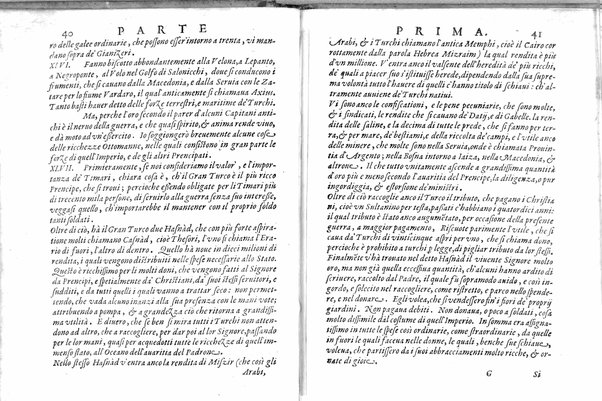 40 PARTE
ro delle galee ordinarie, che possono esser'intorno a trenta, vi man-
dano sopra de' Gianizeri.
XLVI. Fanno biscotto abbondantemente alla Velona, a Lepanto,
a Negroponte, al Volo nel Golfo di Salonicchi, doue si conducono i
frumenti, che si cauano dalla Macedonia, e dalla Seruta con le Za-
tare pe'l lor fiume Vardaro, il qual'anticamente si chiamaua Axius.
Tanto basti hauer detto delle forze terrestri, e maritime de' Turchi.
Ma, perche l'oro secondo il parer d'alcuni Capitani anti-
chi è il nerbo della guerra, e che quasi spirito, & anima rende viuo,
da moto ad vn'esercito. Io soggiongerò breuemente alcune cose
delle ricchezze Ottomanne, nelle quali consistono in gran parte le
forze di quell'Imperio, e degli altri Prencipati.
XLVII. Primieramente, se noi consideriamo il valor', e l'impor-
tanza de' Timari, chiara cosa è, ch'il Gran Turco è il più ricco
Prencipe, che si troui; percioche essendo obligate per li Timari più
di trecento mila persone, di seruirlo alla guerra senza suo interesse,
veggasi quello, ch'importarebbe il mantener con il proprio soldo
tanti soldati.
Oltre di ciò, hà il Gran Turco due Hasnàd, che con più forte aspira-
tione molti chiamano Casnàd, cioè Thesori, l'vno si chiama l'Era-
rio di fuori, l'altro di dentro. Quello hà noue in dieci milioni di
rendita, i quali vengono distributi nelle spese necessarie allo Stato.
Questo è ricchissimo per li molti doni, che vengono fatti al Signore
da Prencipi, e spetialmente da' Christiani, da' suoi istessi seruitori, e
sudditi, e da tutti quelli i quali vanno a trattar seco: non permet-
tendo, che vada alcuno inanzi alla sua presenza con le mani vote;
attribuendo a pompa, & a grandezza ciò che ritorna a grandissi-
ma vtilità. E duero, che se ben si mira tutti i Turchi non atten-
dono ad altro, che a raccogliere, per dar poi al lor Signore, passando
per le lor mani, quasi per acquedotti tutte le ricchezze di quell'im-
menso stato, all'Oceano dell'auaritia del Padrone.
Nello stesso Hasnàd v'entra anco la rendita di Miszir (che così gli
Arabi,
PRIMA. 41
Arabi, & i Turchi chiamano l'antica Memphi, cioè il Cairo cor-
rottamente dalla parola Hebrea Mizraim) la qual rendita è più
d'vn millione. V'entra anco il valsente dell'heredità de' più ricchi,
de' quali a piacer suo s'istituisce herede, dipendendo dalla sua supre-
ma volontà tutti l'hauere di quelli c'hanno titolo di schiaui: ch'al-
tramente auuiene de' Turchi natiui.
Vi sono anco le confiscationi, e le pene pecuniarie, che sono molte,
& i sindicati, le rendite che si cauano da' Datij, e da Gabelle. La ren-
dita delle saline, e la decima di tutte le prede, che si fanno per ter-
ra, & per mare, de' bestiami, e della decima de' campi, e l'vtile anco
delle minere, che molte sono nella Seruia, onde è chiamata Prouin-
tia d'Argento; nella Bosna intorno a Iaiza, nella Macedonia, &
altroue. Il che tutto vnitamente ascende a grandissima quantità
d'oro più e meno secondo l'auaritia del Prencipe, la diligenza, o pur
ingordiggia, & estorsione de' ministri.
Oltre di ciò raccoglie anco il Turco il tributo, che pagano i Christia
ni, cioè vn Sultanino per testa, passati c'habbiano i quatordici anni:
il qual tributo è stato anco augumetato, per occasione della presente
guerra, a maggior pagamento. Riscuote parimente l'vtile, che si
hà da' Turchi di venticinque aspri per vno, che si chiama dono,
percioche è prohibito a' turchi p legge, di pigliar tributo da lor stessi.
Finalmete v'hà trouato nel detto Hasnàd il viuente Signore molto
oro, ma non già quella eccessiua quantità, ch'alcuni hanno ardito di
scriuere, raccolto dal Padre, il qual fù sopramodo auido, e così in-
gordo, e solecito nel raccogliere, come ristretto, e parco nello spende-
re, e nel donare. Egli volea, che si vendessero fin'i fiori de' proprij
giardini. Non pagaua debiti. Non donaua, o poco a soldati, cosa
molto dissimile dal costume di quell'Imperio. In somma era assigna-
tissimo in tutte le spese così ordinarie, come straordinarie, da quelle
in fuori le quali faceua nelle donne, le quali, benche sue schiaue,
voleua, che partissero da i suoi abbracciamenti molto ricche, & or-
nate di gioie.
G Si